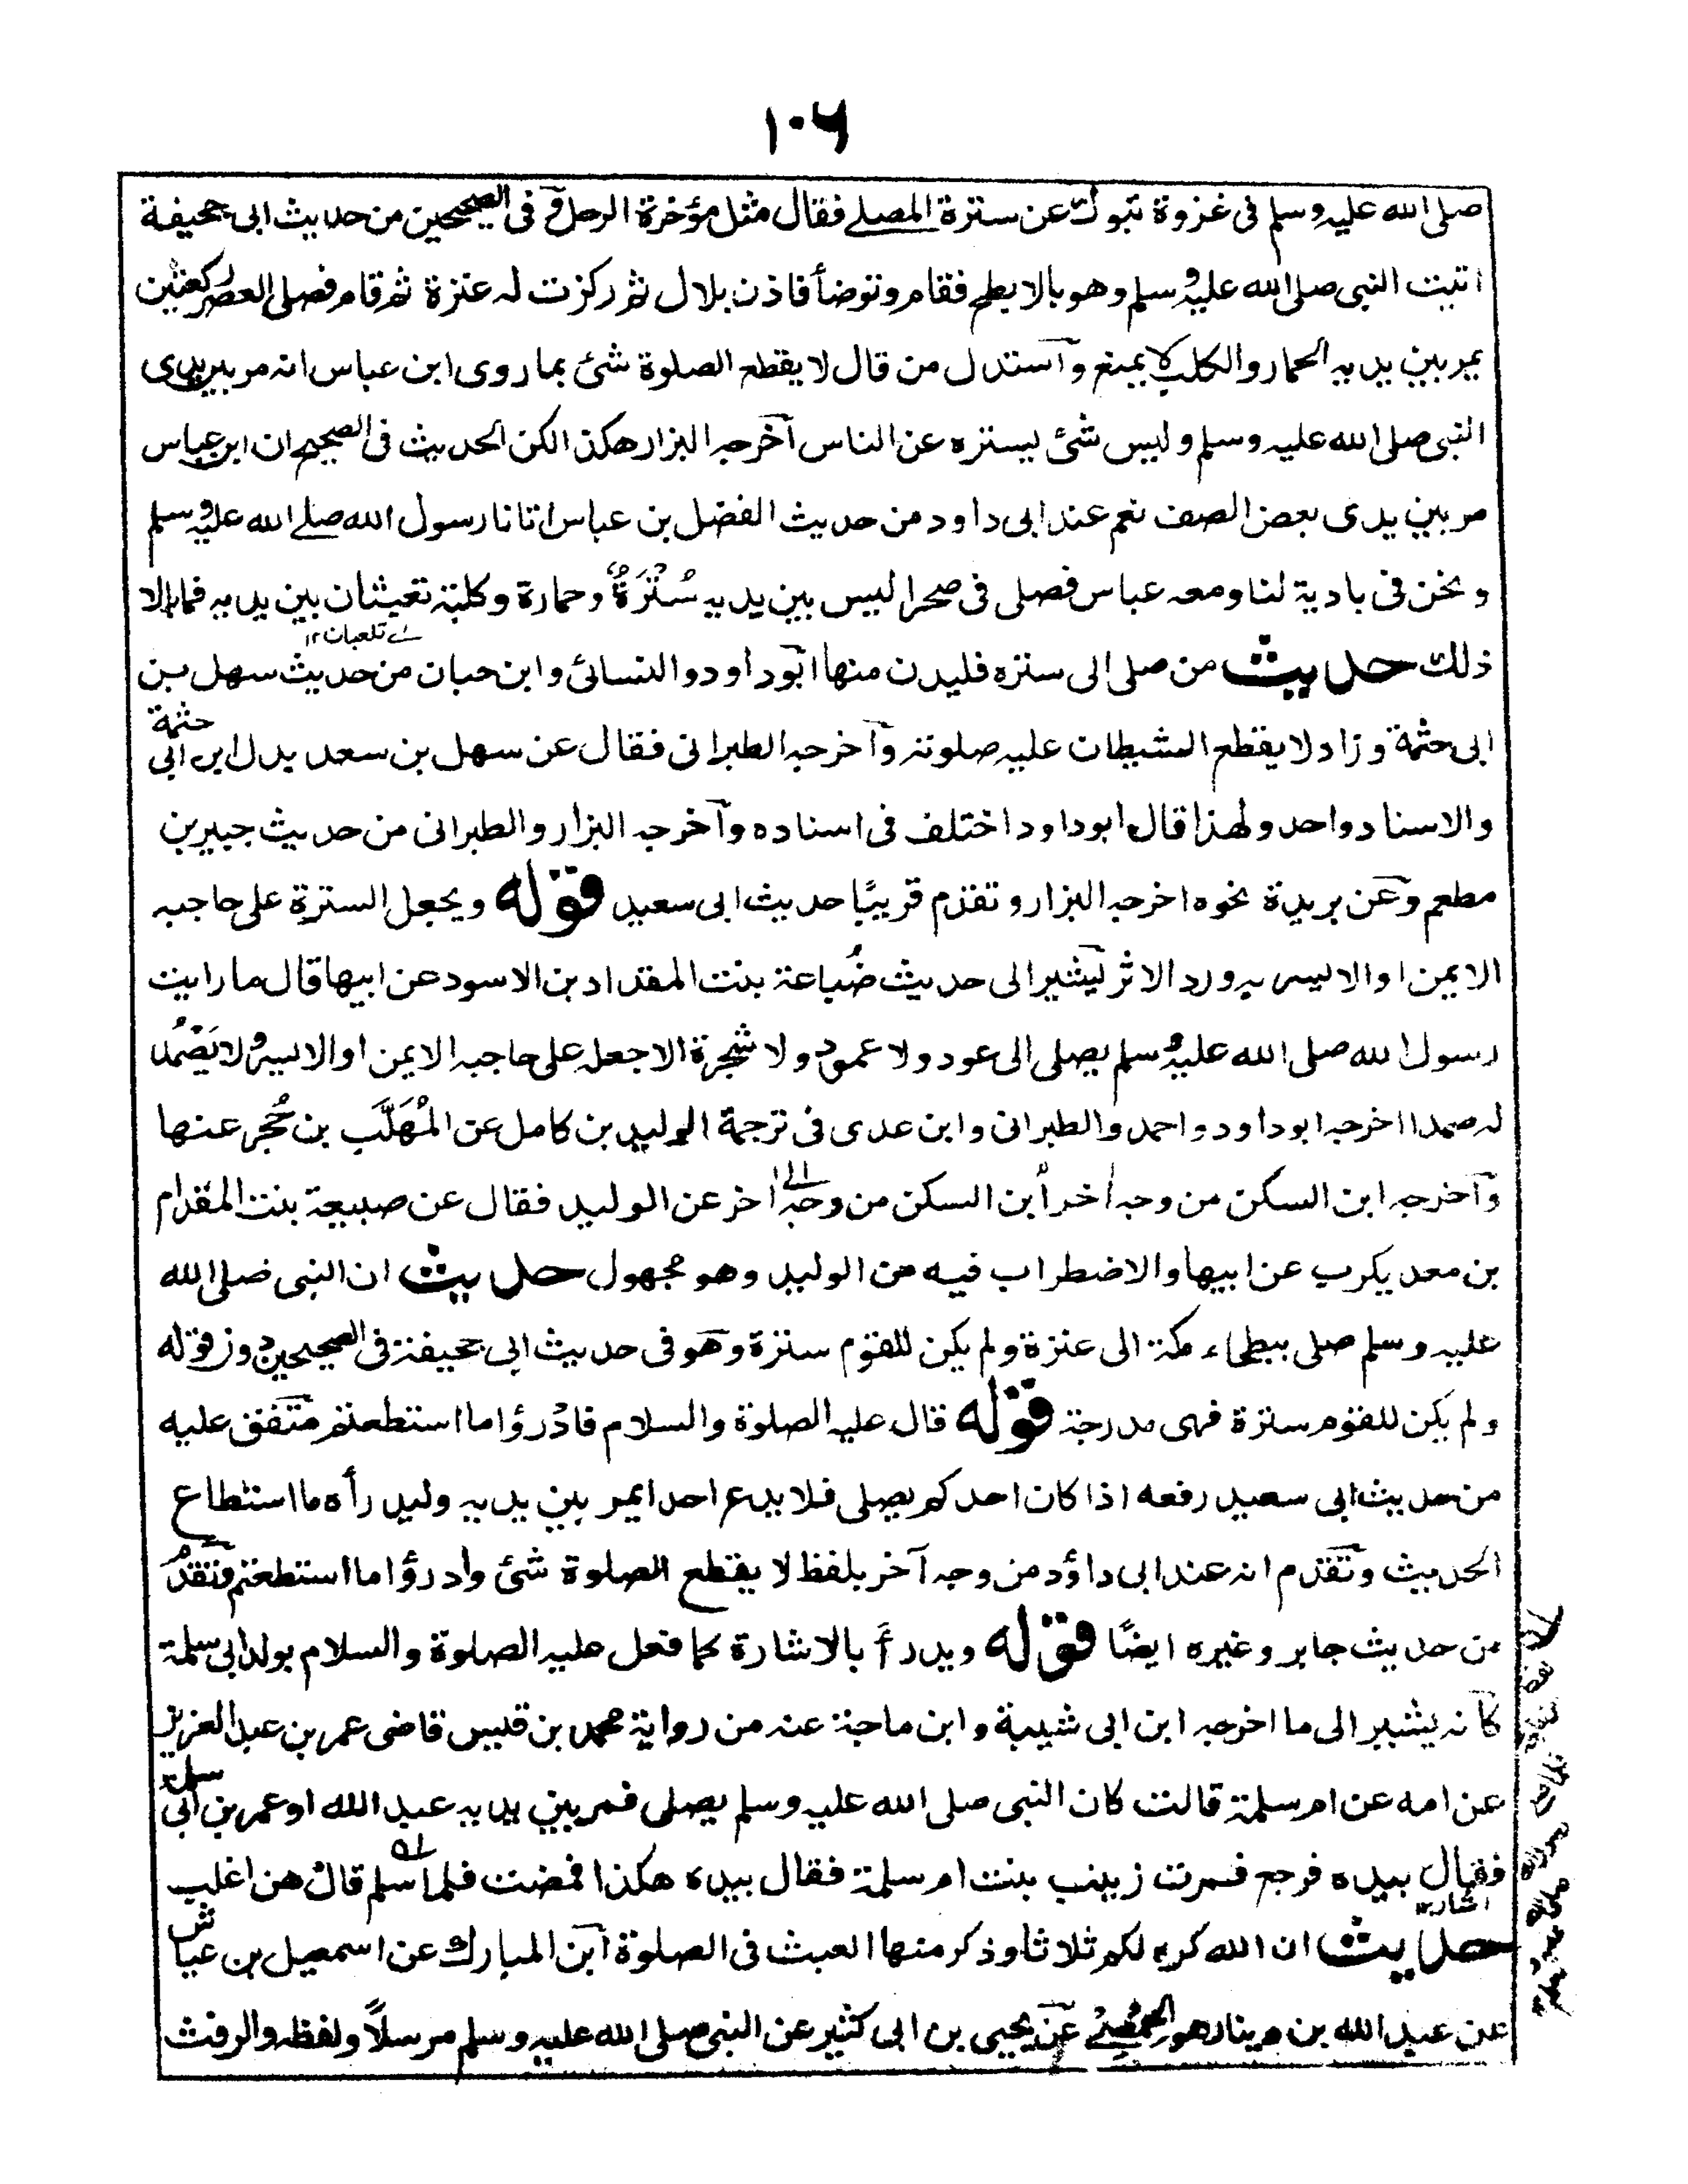 ١٠٦
صلى الله عليه وسلم فى غزوة تبوك عن سترة المصلے فقال مثل مؤخرة الرحل و فى الصحيحين من حديث ابى جحيفة
اتيت النبى صلى الله عليه وسلم وهو بالابطح فقام وتوضأ فاذن بلال ثم ركزت له عنزة ثم قام فصلى العصر ركعتين
يمر بين يديه الحمار والكلب لا يمنع وآستدل من قال لا يقطع الصلوة شئ بما روى ابن عباس انه مر بين يدى
النبى صلى الله عليه وسلم وليس شئ يستره عن الناس آخرجه البزار هكذا لكن الحديث فى الصحيح ان ابن عباس
مر بين يدى بعض الصف نعم عند ابى داود من حديث الفضل بن عباس اتانا رسول الله صلے الله عليه وسلم
ونحن فى بادية لنا ومعه عباس فصلى فى صحرا ليس بين يديه سُتْرَةٌ وحمارة وكلبة تعبثان بين يديه فما بالا
اے تلعبان ١٢
ذلك حديث من صلى الى سترة فليدن منها ابوداود والنسائى وابن حبان من حديث سهل بن
ابى حثمة وزاد لا يقطع الشيطان عليه صلوته وآخرجه الطبرانى فقال عن سهل بن سعد بدل ابن ابى حثمة
والاسناد واحد ولهذا قال ابوداود اختلف فى اسناده وآخرجه البزار والطبرانى من حديث جبير بن
مطعم وعن بريدة نحوه اخرجه البزار وتقدم قريبًا حديث ابى سعيد قوله ويجعل السترة على حاجبه
الايمن او الايسر به ورد الاثر يشير الى حديث ضُباعة بنت المقداد بن الاسود عن ابيها قال ما رايت
رسول الله صلى الله عليه وسلم يصلى الى عود ولا عمود ولا شجرة الا جعله على حاجبه الايمن او الايسر ولا يَصْمُد
له صمدا اخرجه ابوداود واحمد والطبرانى وابن عدى فى ترجمة الوليد بن كامل عن المُهَلَّب بن حُجر عنها
وآخرجه ابن السكن من وجه اخر ابن السكن من وجه اخر عن الوليد فقال عن ضبيعة بنت المقدام
بن معديكرب عن ابيها والاضطراب فيه من الوليد وهو مجهول حديث ان النبى صلى الله
عليه وسلم صلى ببطحاء مكة الى عنزة ولم يكن للقوم سترة وهو فى حديث ابى جحيفة فى الصحيحين دون قوله
ولم يكن للقوم سترة فهى مدرجة قوله قال عليه الصلوة والسلام فادْرؤا ما استطعتم متفق عليه
من حديث ابى سعيد رفعه اذا كان احدكم يصلى فلا يدع احدا يمر بين يديه وليدرأه ما استطاع
الحديث وتقدم انه عند ابى داؤد من وجه آخر بلفظ لا يقطع الصلوة شئ وادرؤا ما استطعتم وتقدم
من حديث جابر وغيره ايضًا قوله ويدرأ بالاشارة كما فعل عليه الصلوة والسلام بولد ابى سلمة
كانه يشير الى ما اخرجه ابن ابى شيبة وابن ماجة عنه من رواية محمد بن قيس قاضى عمر بن عبد العزيز
عن امه عن ام سلمة قالت كان النبى صلى الله عليه وسلم يصلى فمر بين يديه عبد الله او عمر بن ابى سلمة
فقال بيده فرجع فمرت زينب بنت ام سلمة فقال بيده هكذا فمضت فلما سلم قال هن اغلب
اشار ١٢
حديث ان الله كره لكم ثلاثا وذكر منها العبث فى الصلوة ابن المبارك عن اسمعيل بن عياش
عن عبد الله بن دينار هو الحمصے عن يحيى بن ابى كثير عن النبى صلى الله عليه وسلم مرسلاً ولفظه والرفث